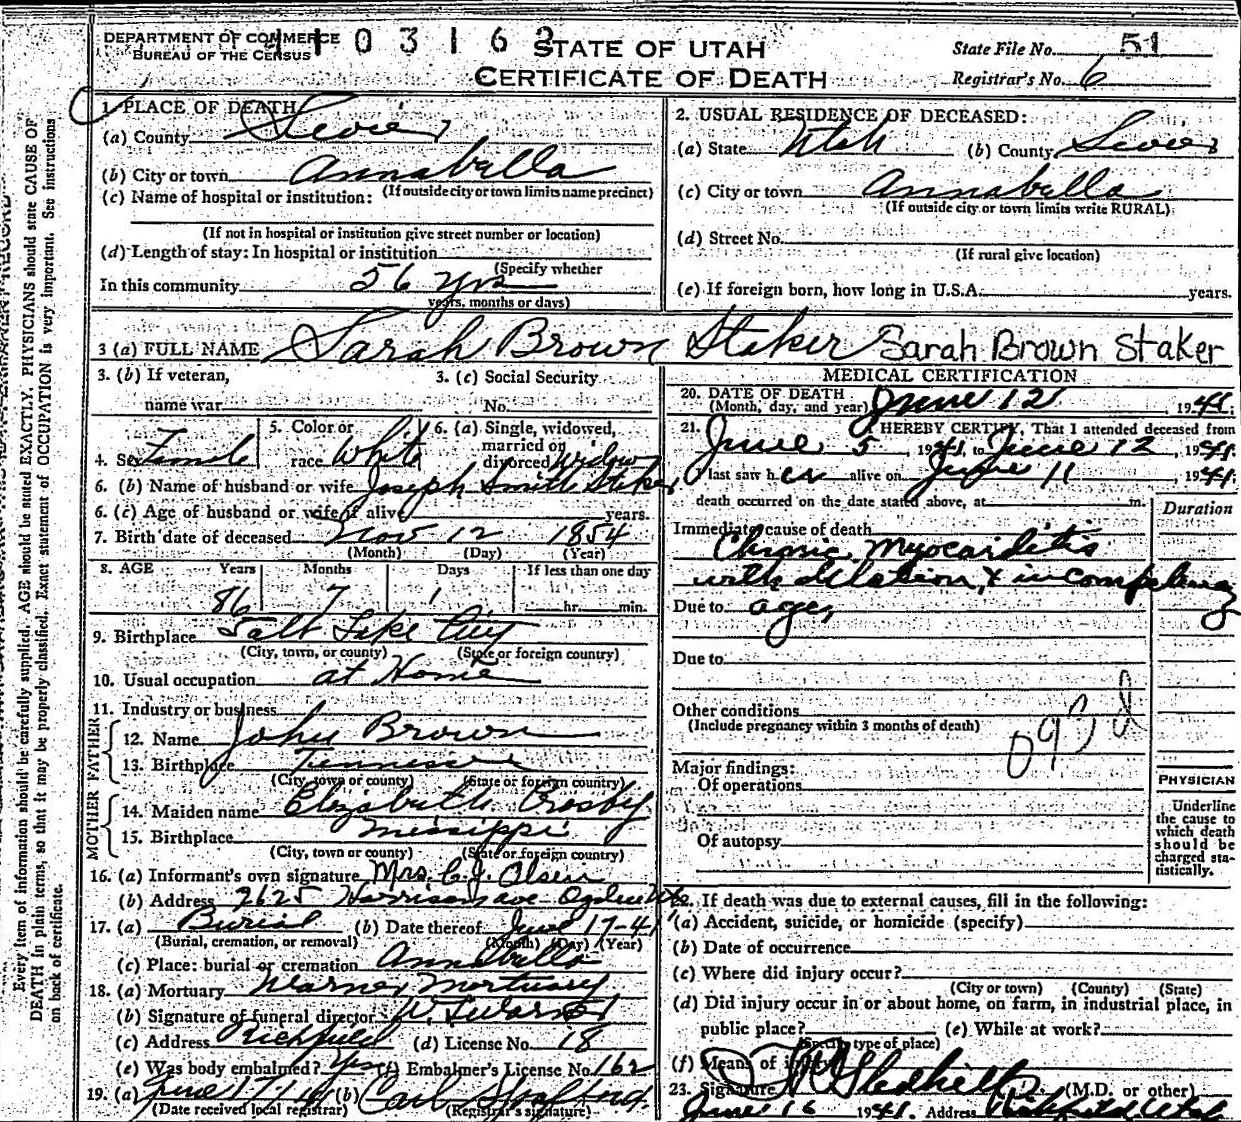 DEPARTMENT OF COMMERCE
BUREAU OF THE CENSUS
STATE OF UTAH
CERTIFICATE OF DEATH
State File No. 51
Registrar's No. 6
1. PLACE OF DEATH
(a) County Sevier
(b) City or town Annabella
(If outside city or town limits name precinct)
(c) Name of hospital or institution:
(If not in hospital or institution give street number or location)
(d) Length of stay: In hospital or institution
(Specify whether
In this community 56 yrs
years, months or days)
2. USUAL RESIDENCE OF DECEASED:
(a) State Utah (b) County Sevier
(c) City or town Annabella
(If outside city or town limits write RURAL)
(d) Street No.
(If rural give location)
(e) If foreign born, how long in U.S.A. years.
3 (a) FULL NAME Sarah Brown Staker Sarah Brown Staker
3. (b) If veteran,
name war
3. (c) Social Security
No.
4. Sex Female
5. Color or
race White
6. (a) Single, widowed,
married or
divorced Widow
6. (b) Name of husband or wife Joseph Smith Staker
6. (c) Age of husband or wife if alive years.
7. Birth date of deceased Nov 12 1854
(Month) (Day) (Year)
8. AGE Years Months Days If less than one day
86 7 1 hr. min.
9. Birthplace Salt Lake City
(City, town, or county) (State or foreign country)
10. Usual occupation at Home
11. Industry or business
FATHER
12. Name John Brown
13. Birthplace Tennessee
(City, town or county) (State or foreign country)
MOTHER
14. Maiden name Elizabeth Crosby
15. Birthplace Missippi
(City, town or county) (State or foreign country)
16. (a) Informant's own signature Mrs. C.J. Olsen
(b) Address 2625 Harrison ave Ogden Ut
17. (a) Burial (b) Date thereof June 17-41
(Burial, cremation, or removal) (Month) (Day) (Year)
(c) Place: burial or cremation Annabella
18. (a) Mortuary Mortuary
(b) Signature of funeral director
(c) Address Richfield (d) License No. 18
(e) Was body embalmed? Yes (f) Embalmer's License No. 162
19. (a) June 17 (b) Carl
(Date received local registrar) (Registrar's signature)
MEDICAL CERTIFICATION
20. DATE OF DEATH
(Month, day, and year) June 12, 1941.
21. I HEREBY CERTIFY, That I attended deceased from
June 5, 1941, to June 12, 1941.
I last saw her alive on June 11, 1941.
death occurred on the date stated above, at m.
Duration
Immediate cause of death
Chronic Myocarditis
with dilation, & incompetency
Due to age,
Due to
Other conditions
(Include pregnancy within 3 months of death)
093d
Major findings:
Of operations
Of autopsy
PHYSICIAN
Underline
the cause to
which death
should be
charged sta-
tistically.
22. If death was due to external causes, fill in the following:
(a) Accident, suicide, or homicide (specify)
(b) Date of occurrence
(c) Where did injury occur?
(City or town) (County) (State)
(d) Did injury occur in or about home, on farm, in industrial place, in
public place? (e) While at work?
(Specify type of place)
(f) Means of injury
23. Signature (M.D. or other)
June 16 1941. Address Richfield Utah
Every item of information should be carefully supplied. AGE should be stated EXACTLY. PHYSICIANS should state CAUSE OF
DEATH in plain terms, so that it may be properly classified. Exact statement of OCCUPATION is very important. See instructions
on back of certificate.